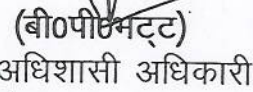 (बी०पी०भट्ट)
अधिशासी अधिकारी